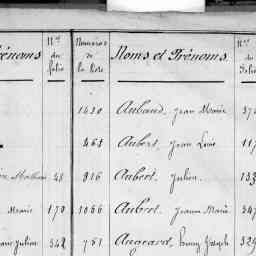 Prénoms | Nos du folio | Numéros de la liste | Noms et Prénoms | Nos du Folio
1430 | Aubaud, Jean Marie | 37
463 | Aubert, Jean Louis | 117
48 | 816 | Aubert Julien | 133
Marie | 170 | 1066 | Aubert, Jeanne Marie | 347
Julien | 342 | 751 | Augeard, Fanny Joseph | 329